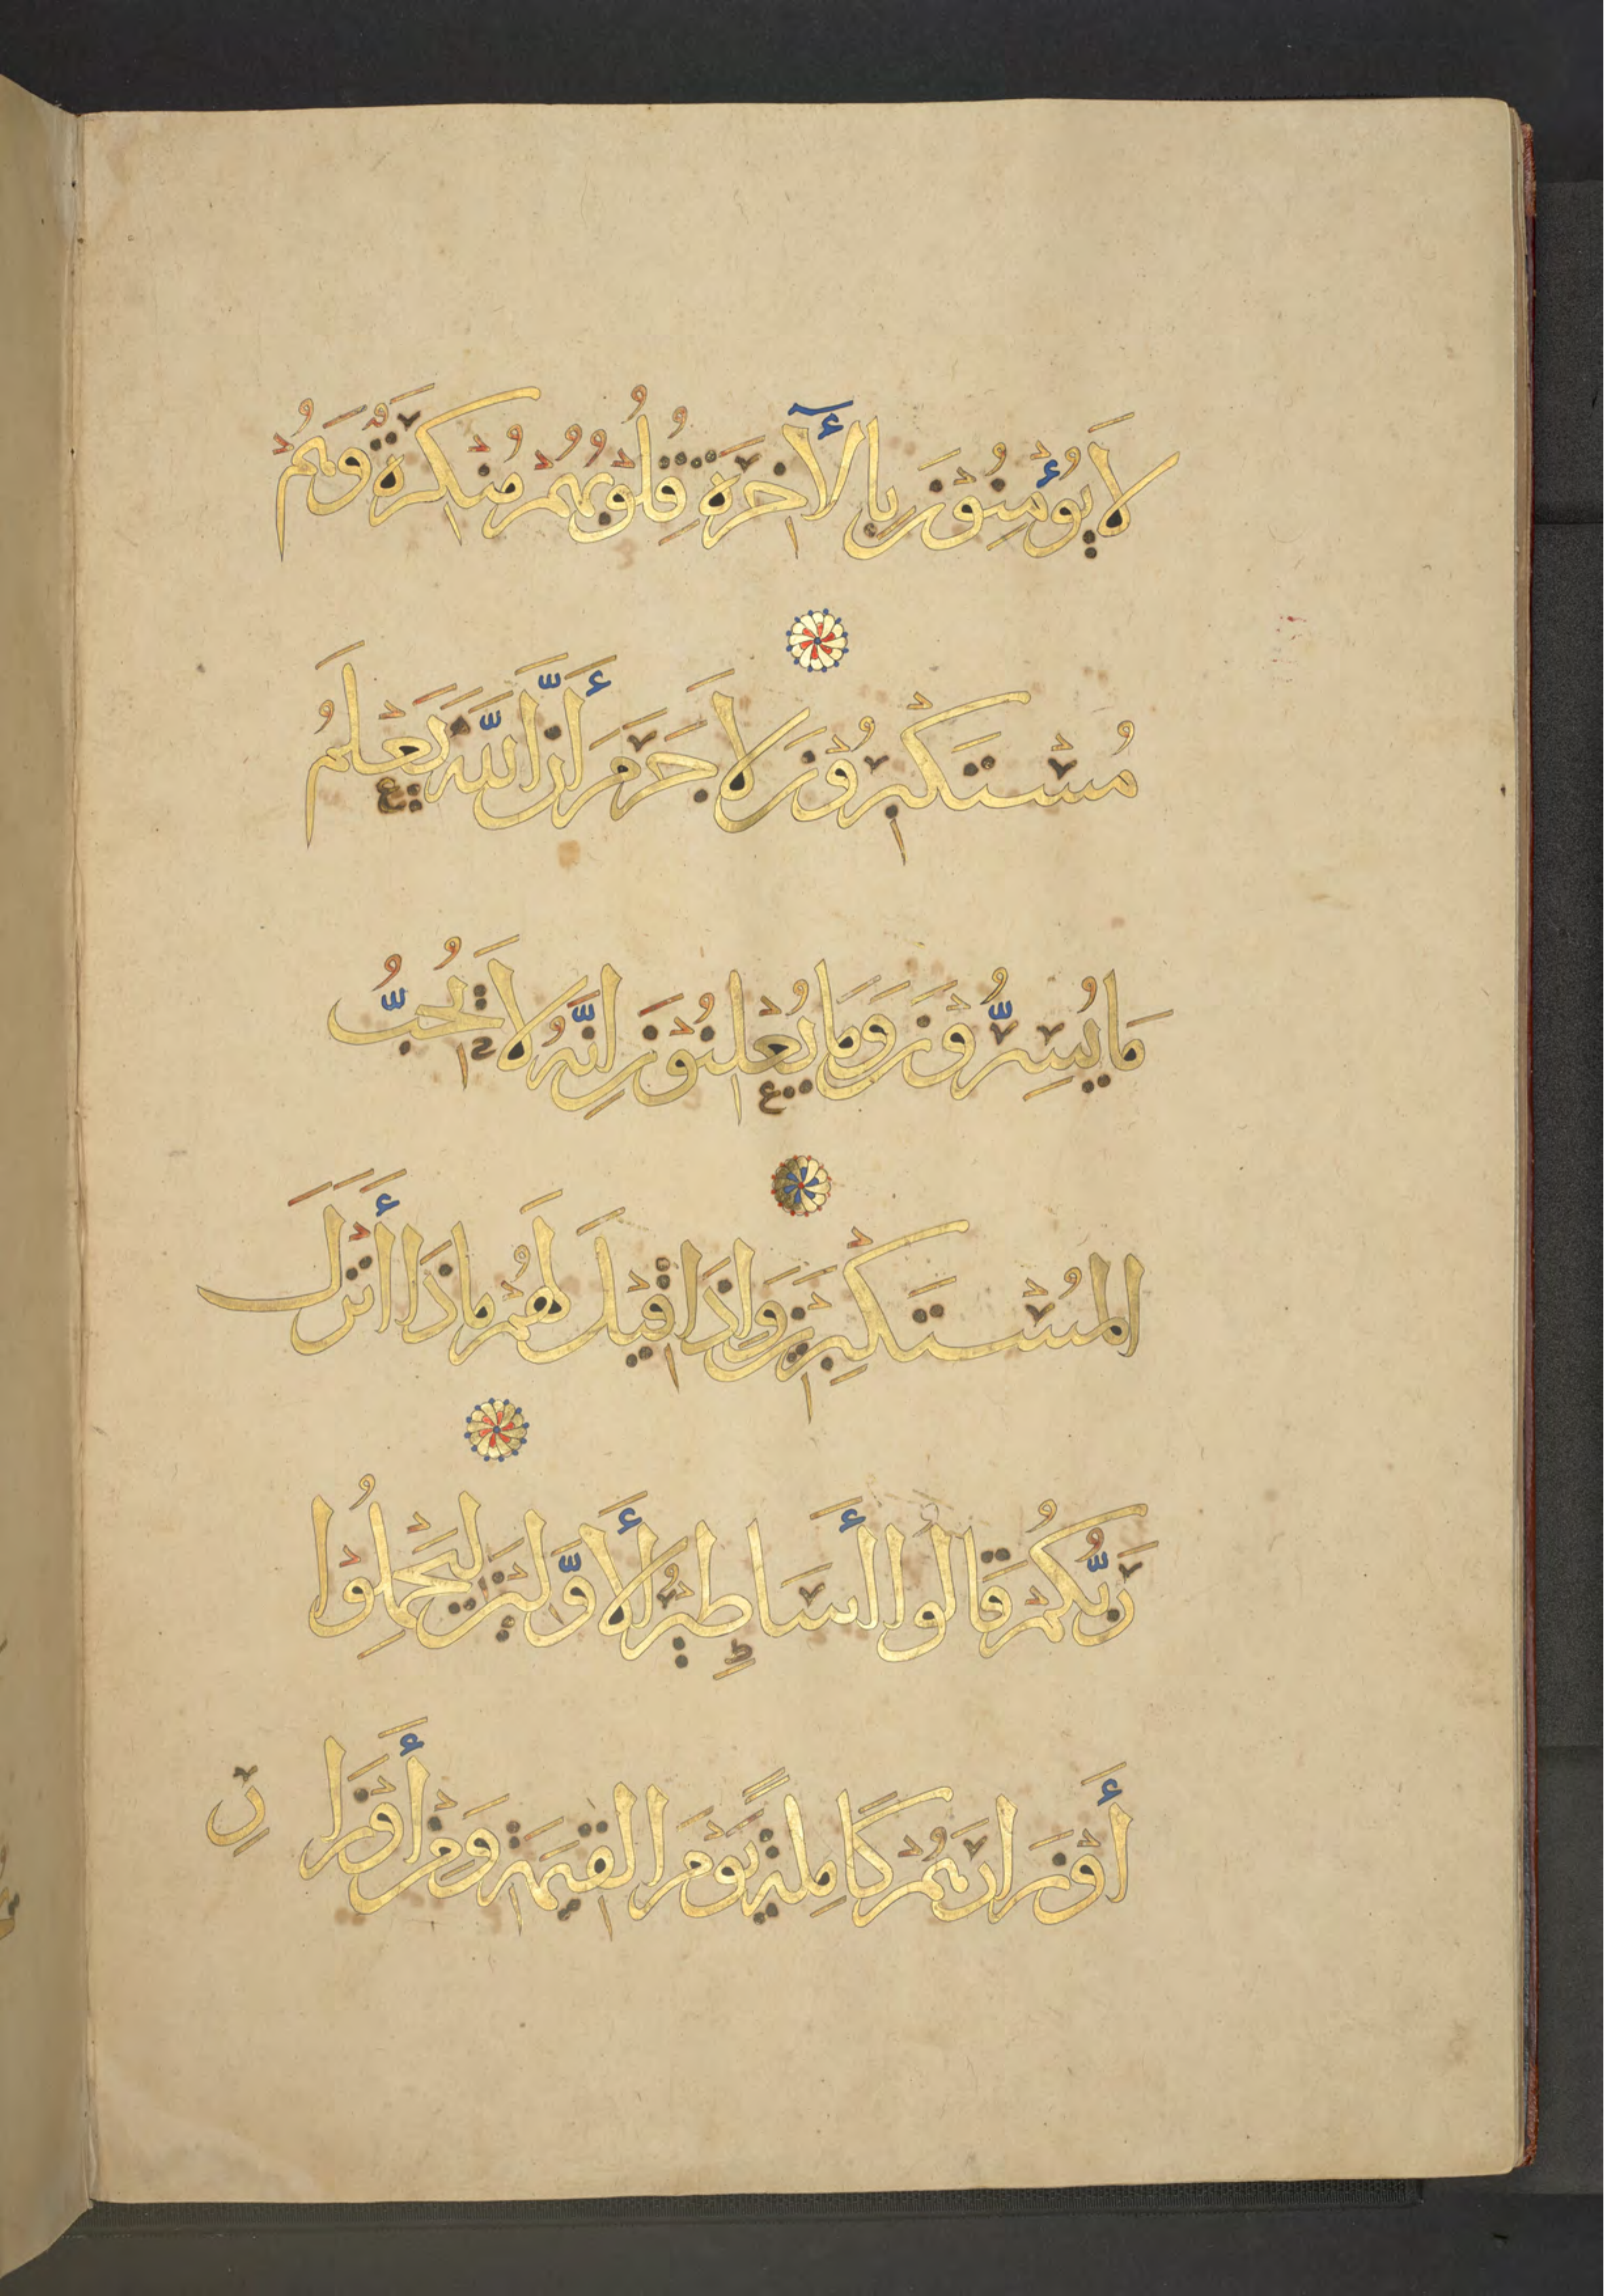 لَا يُؤْمِنُوْنَ بِالْأٓخِرَةِ قُلُوْبُهُمْ مُنْكِرَةٌ وَهُمْ
مُسْتَكْبِرُوْنَ لَا جَرَمَ أَنَّ اللّٰهَ يَعْلَمُ
مَا يُسِرُّوْنَ وَمَا يُعْلِنُوْنَ اِنَّهُ لَا يُحِبُّ
الْمُسْتَكْبِرِيْنَ وَاِذَا قِيْلَ لَهُمْ مَاذَا أَنْزَلَ
رَبُّكُمْ قَالُوا أَسَاطِيْرُ الْأَوَّلِيْنَ لِيَحْمِلُوْا
أَوْزَارَهُمْ كَامِلَةً يَوْمَ الْقِيٰمَةِ وَمِنْ أَوْزَا
رِ